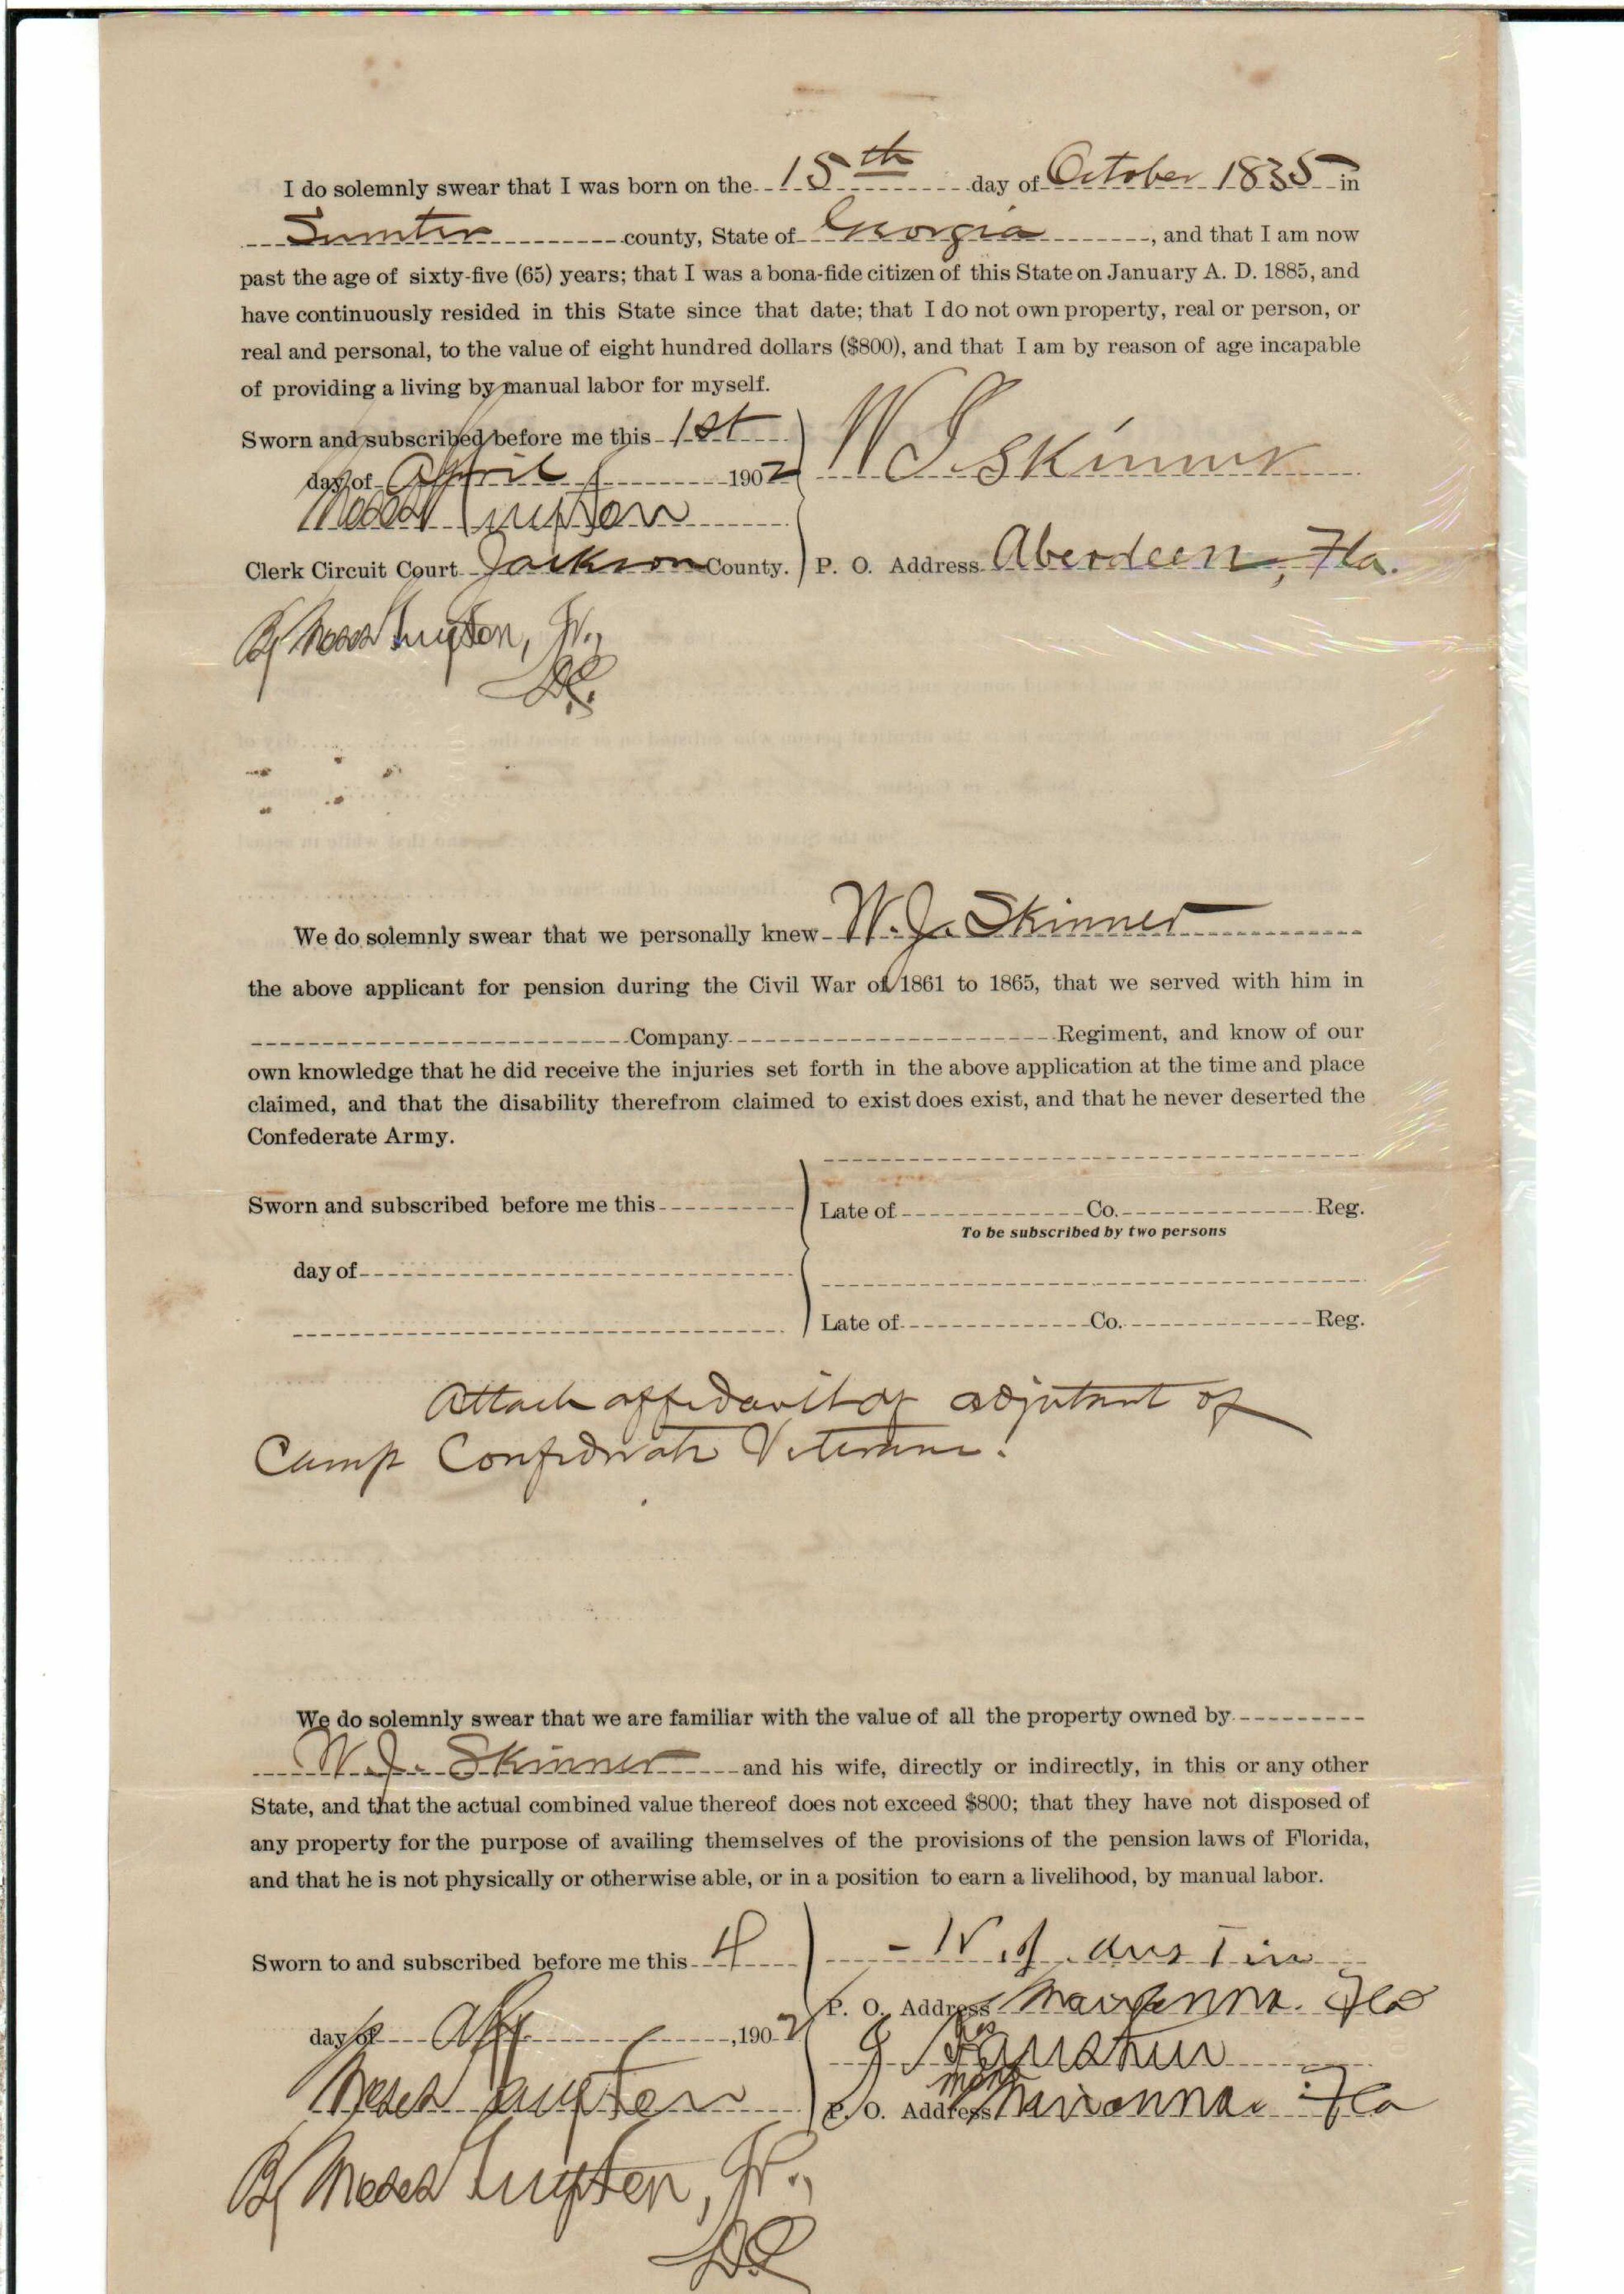 I do solemnly swear that I was born on the 15th day of October 1835 in
Sumter county, State of Georgia, and that I am now
past the age of sixty-five (65) years; that I was a bona-fide citizen of this State on January A. D. 1885, and
have continuously resided in this State since that date; that I do not own property, real or person, or
real and personal, to the value of eight hundred dollars ($800), and that I am by reason of age incapable
of providing a living by manual labor for myself.
Sworn and subscribed before me this 1st
day of April 1902
W J Skinner
Moses Guyton
Clerk Circuit Court Jackson County.
P. O. Address Aberdeen, Fla.
By Moses Guyton, Jr.,
D.C.
We do solemnly swear that we personally knew W. J. Skinner
the above applicant for pension during the Civil War of 1861 to 1865, that we served with him in
Company Regiment, and know of our
own knowledge that he did receive the injuries set forth in the above application at the time and place
claimed, and that the disability therefrom claimed to exist does exist, and that he never deserted the
Confederate Army.
Sworn and subscribed before me this
Late of Co. Reg.
To be subscribed by two persons
day of
Late of Co. Reg.
Attach affidavit of adjutant of
Camp Confederate Veterans.
We do solemnly swear that we are familiar with the value of all the property owned by
W. J. Skinner and his wife, directly or indirectly, in this or any other
State, and that the actual combined value thereof does not exceed $800; that they have not disposed of
any property for the purpose of availing themselves of the provisions of the pension laws of Florida,
and that he is not physically or otherwise able, or in a position to earn a livelihood, by manual labor.
Sworn to and subscribed before me this 4
Austin
P. O. Address Marianna. Fla
day of Apl. ,1902
his
J Austin
mark
Moses Guyton
P. O. Address Marianna. Fla
By Moses Guyton, Jr.,
DC